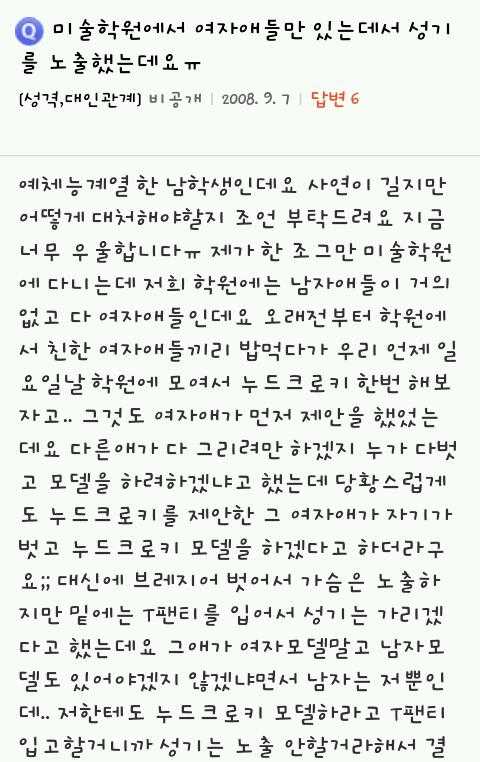 Q 미술학원에서 여자애들만 있는데서 성기
를 노출했는데요ㅠ
[성격,대인관계] 비공개 | 2008. 9. 7 | 답변 6
예체능계열 한 남학생인데요 사연이 길지만
어떻게 대처해야할지 조언 부탁드려요 지금
너무 우울합니다ㅠ 제가 한 조그만 미술학원
에 다니는데 저희 학원에는 남자애들이 거의
없고 다 여자애들인데요 오래전부터 학원에
서 친한 여자애들끼리 밥먹다가 우리 언제 일
요일날 학원에 모여서 누드크로키 한번 해보
자고.. 그것도 여자애가 먼저 제안을 했었는
데요 다른애가 다 그리려만 하겠지 누가 다벗
고 모델을 하려하겠냐고 했는데 당황스럽게
도 누드크로키를 제안한 그 여자애가 자기가
벗고 누드크로키 모델을 하겠다고 하더라구
요;; 대신에 브레지어 벗어서 가슴은 노출하
지만 밑에는 T팬티를 입어서 성기는 가리겠
다고 했는데요 그애가 여자모델말고 남자모
델도 있어야겠지 않겠냐면서 남자는 저뿐인
데.. 저한테도 누드크로키 모델하라고 T팬티
입고할거니까 성기는 노출 안할거라해서 결